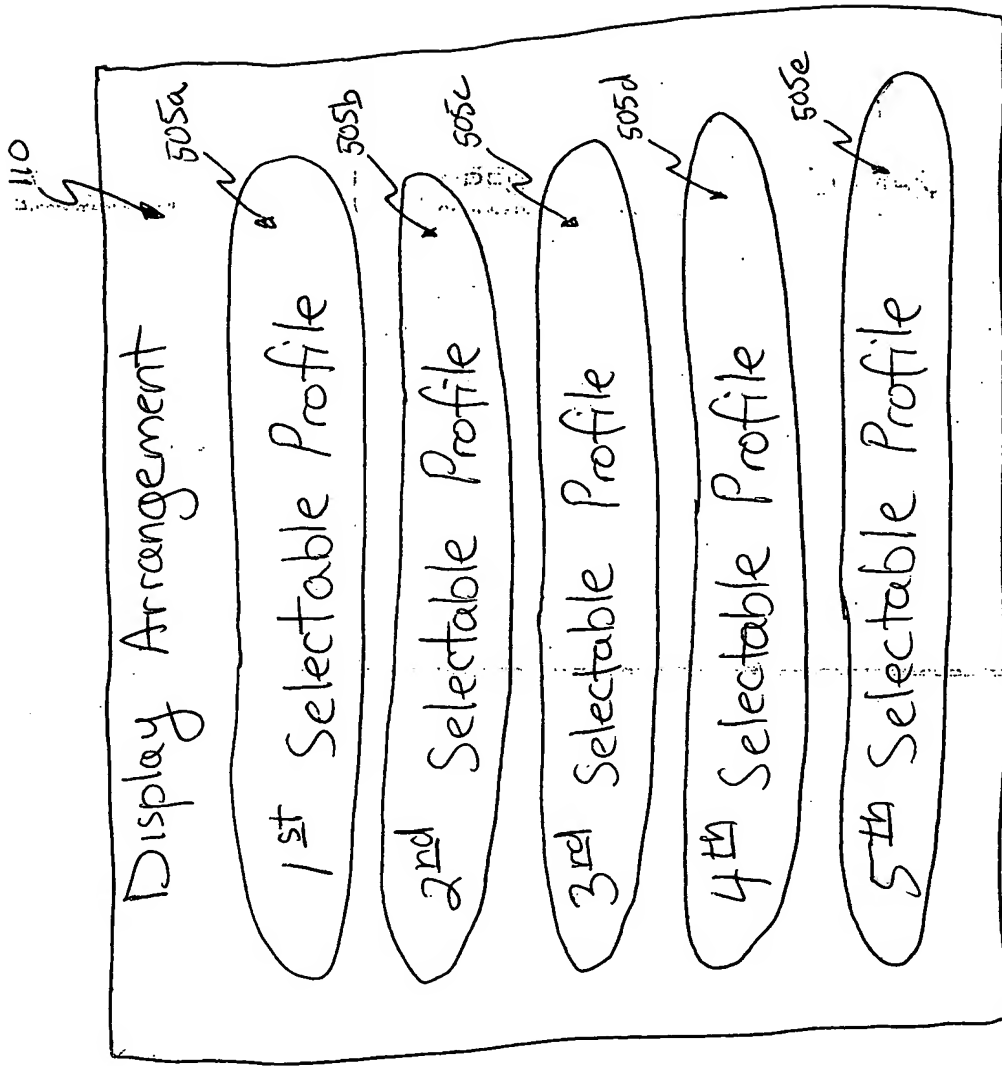 110
Display Arrangement
505a
1st Selectable Profile
505b
2nd Selectable Profile
505c
3rd Selectable Profile
505d
4th Selectable Profile
505e
5th Selectable Profile